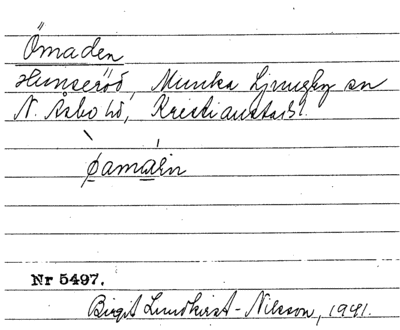 Ömaden
Hunseröd, Munka Ljungby sn
N. Åsbo hd, Kristianstads l.
Nr 5497.
Birgit Lundkvist-Nilsson, 1941.